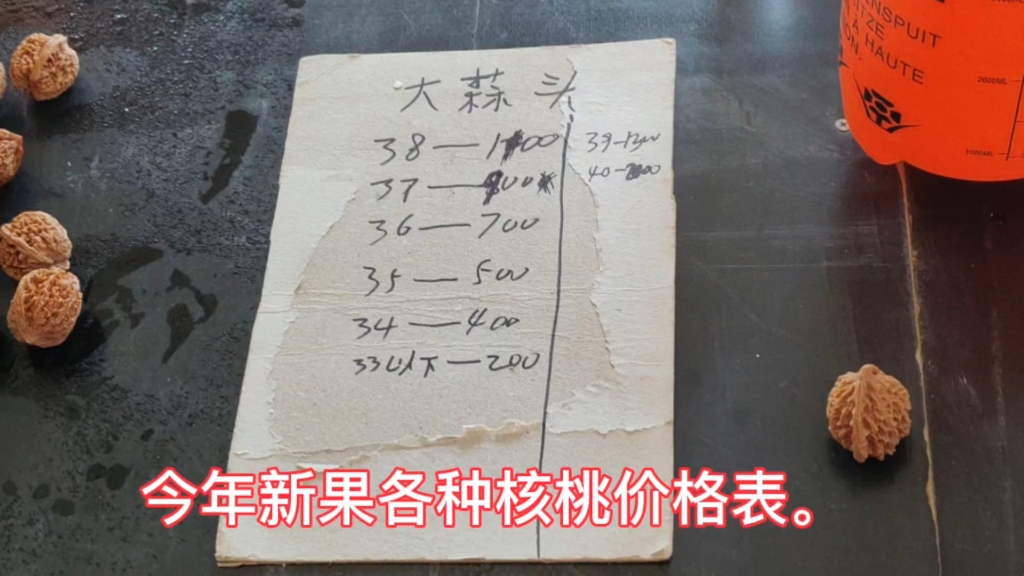 大蒜头
38—1100
37—900
36—700
35—500
34—400
33以下—200
39—1300
40—
ENSPUIT
IZE
HAUTE
ON.
2000ML
1000ML
今年新果各种核桃价格表。